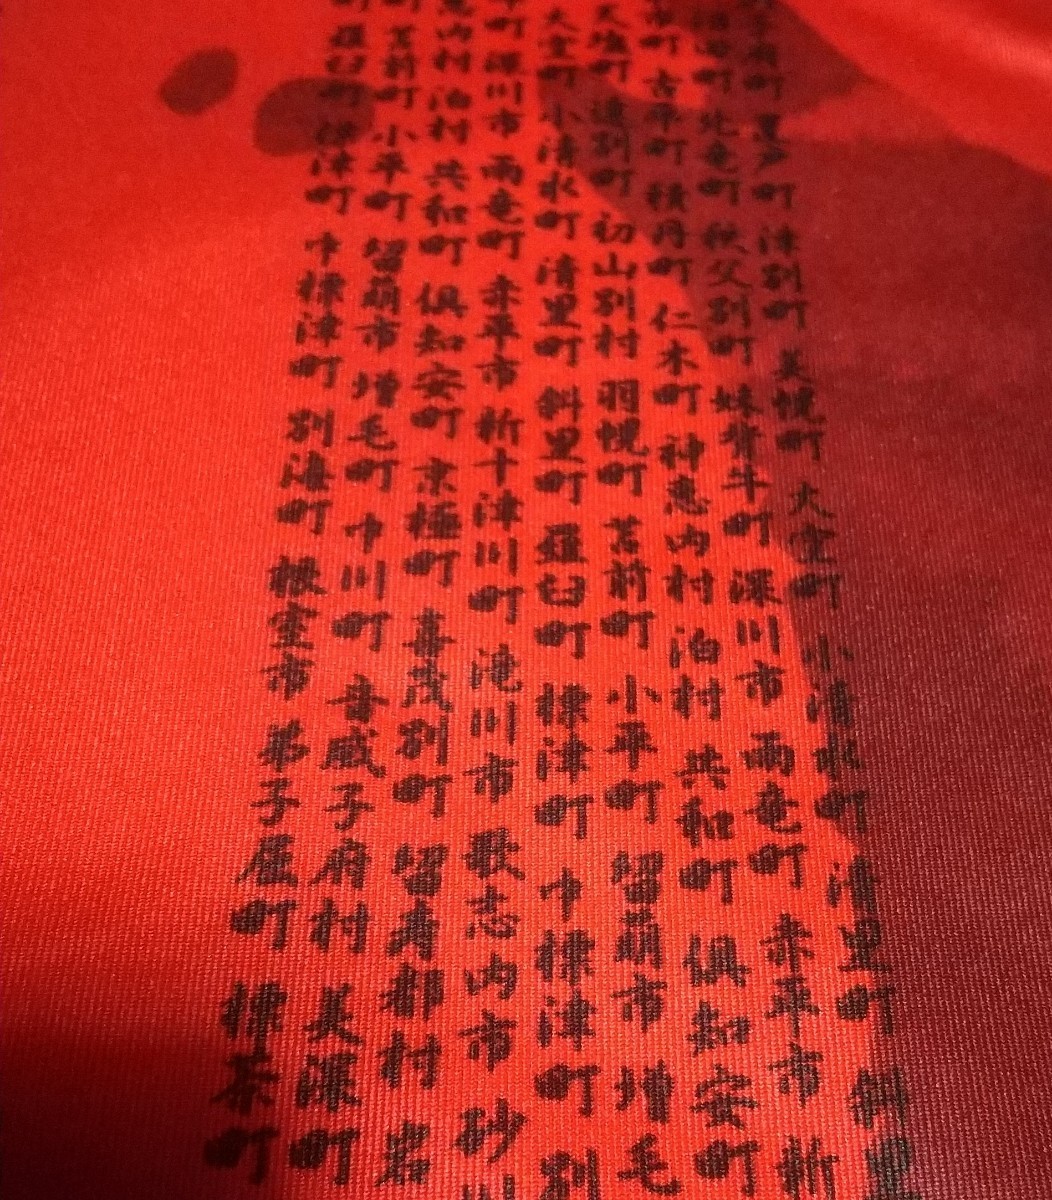 子府町 置戸町 津別町 美幌町 大空町 小清水町 清里町 斜里
沼田町 北竜町 秩父別町 妹背牛町 深川市 雨竜町 赤平市 新
市町 古平町 積丹町 仁木町 神恵内村 泊村 共和町 倶知安町
天塩町 遠別町 初山別村 羽幌町 苫前町 小平町 留萌市 増毛
大空町 小清水町 清里町 斜里町 羅臼町 標津町 中標津町 別
町 深川市 雨竜町 赤平市 新十津川町 滝川市 歌志内市 砂川
恵内村 泊村 共和町 倶知安町 京極町 喜茂別町 留寿都村 岩
町 苫前町 小平町 留萌市 増毛町 中川町 音威子府村 美深町
町 羅臼町 標津町 中標津町 別海町 根室市 弟子屈町 標茶町